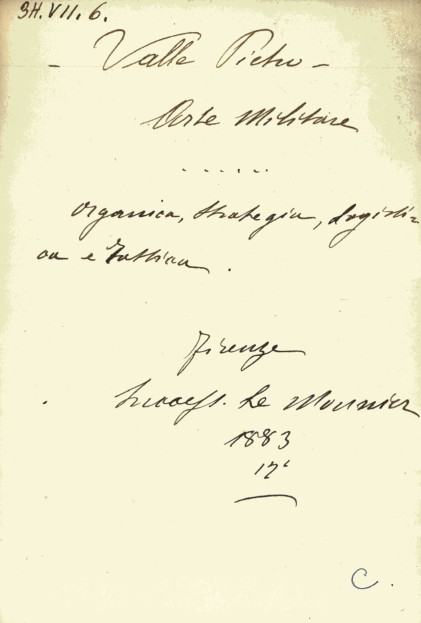 3H.VII.6.
- Valle Pietro -
Arte Militare
......
Organica, Strategia, Logisti=
ca e Tattica.
Firenze
Success. Le Monnier
1883
C.